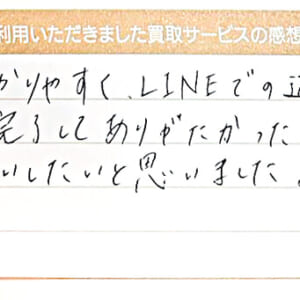 利用いただきました買取サービスの感想
かりやすく、LINEでの
完了してありがたかった
いしたいと思いました。